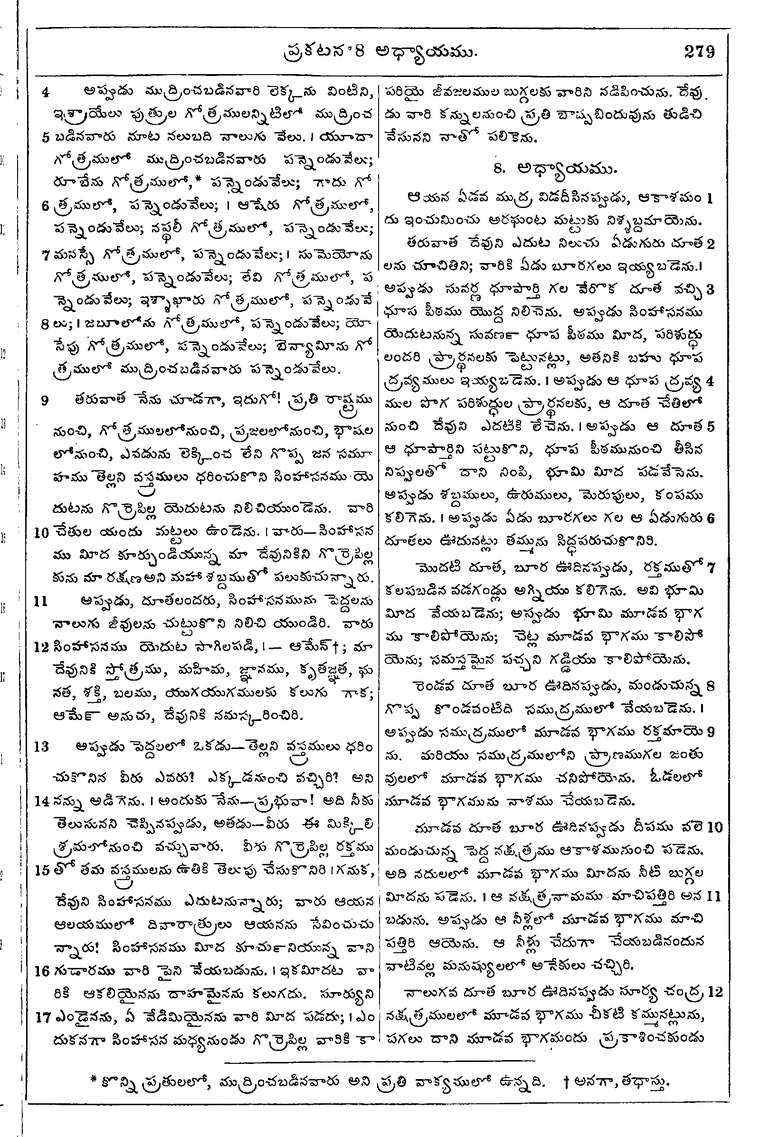 ప్రకటన 8 అధ్యాయము. 279
4 అప్పుడు ముద్రించబడినవారి లెక్కను వింటిని,
ఇశ్రాయేలు పుత్రుల గోత్రములన్నిటిలో ముద్రించ
5 బడినవారు నూట నలుబది నాలుగు వేలు. । యూదా
గోత్రములో ముద్రించబడినవారు పన్నెండువేలు;
రూబేను గోత్రములో,* పన్నెండువేలు; గాదు గో
6 త్రములో, పన్నెండువేలు; । ఆషేరు గోత్రములో,
పన్నెండువేలు; నఫ్తలీ గోత్రములో, పన్నెండువేలు;
7 మనస్సే గోత్రములో, పన్నెండువేలు; । సుమెయోను
గోత్రములో, పన్నెండువేలు; లేవి గోత్రములో, ప
న్నెండువేలు; ఇశ్శాఖారు గోత్రములో, పన్నెండువే
8 లు; । జబూలోను గోత్రములో, పన్నెండువేలు; యో
సేపు గోత్రములో, పన్నెండువేలు; బెన్యామీను గో
త్రములో ముద్రించబడినవారు పన్నెండువేలు.
9 తరువాత నేను చూడగా, ఇదుగో! ప్రతి రాష్ట్రము
నుంచి, గోత్రములలోనుంచి, ప్రజలలోనుంచి, భాషల
లోనుంచి, ఎవడును లెక్కించ లేని గొప్ప జన సమూ
హము తెల్లని వస్త్రములు ధరించుకొని సింహాసనము యె
దుటను గొర్రెపిల్ల యెదుటను నిలిచియుండెను. వారి
10 చేతుల యందు మట్టలు ఉండెను. । వారు—సింహాసన
ము మీద కూర్చుండియున్న మా దేవునికిని గొర్రెపిల్ల
కును మా రక్షణ అని మహా శబ్దముతో పలుకుచున్నారు.
11 అప్పుడు, దూతలందరు, సింహాసనమును పెద్దలను
నాలుగు జీవులను చుట్టుకొని నిలిచి యుండిరి. వారు
12 సింహాసనము యెదుట సాగిలపడి, । — ఆమేన్†; మా
దేవునికి స్తోత్రము, మహిమ, జ్ఞానము, కృతజ్ఞత, ఘ
నత, శక్తి, బలము, యుగయుగములకు కలుగు గాక;
ఆమేన్ అనుచు, దేవునికి నమస్కరించిరి.
13 అప్పుడు పెద్దలలో ఒకడు—తెల్లని వస్త్రములు ధరిం
చుకొనిన వీరు ఎవరు? ఎక్కడనుంచి వచ్చిరి? అని
14 నన్ను అడిగెను. । అందుకు నేను—ప్రభువా! అది నీకు
తెలుసునని చెప్పినప్పుడు, అతడు—వీరు ఈ మిక్కిలి
శ్రమలోనుంచి వచ్చువారు. వీరు గొర్రెపిల్ల రక్తము
15 తో తమ వస్త్రములను ఉతికి తెలుపు చేసుకొనిరి । గనుక,
దేవుని సింహాసనము ఎదుటనున్నారు; వారు ఆయన
ఆలయములో దివారాత్రులు ఆయనను సేవించుచు
న్నారు! సింహాసనము మీద కూర్చునియున్న వాని
16 గుడారము వారి పైని వేయబడును. । ఇకమీదట వా
రికి ఆకలియైనను దాహమైనను కలుగదు. సూర్యుని
17 ఎండైనను, ఏ వేడిమియైనను వారి మీద పడదు; । ఎం
దుకనగా సింహాసన మధ్యనుండు గొర్రెపిల్ల వారికి కా
పరియై జీవజలముల బుగ్గలకు వారిని నడిపించును. దేవు
డు వారి కన్నులనుంచి ప్రతి బాష్పబిందువును తుడిచి
వేసునని నాతో పలికెను.
8. అధ్యాయము.
ఆయన ఏడవ ముద్ర విడదీసినప్పుడు, ఆకాశమం 1
దు ఇంచుమించు అరఘంట మట్టుకు నిశ్శబ్దమాయెను.
తరువాత దేవుని ఎదుట నిలుచు ఏడుగురు దూత 2
లను చూచితిని; వారికి ఏడు బూరగలు ఇయ్యబడెను. ।
అప్పుడు సువర్ణ ధూపార్తి గల వేరొక దూత వచ్చి 3
ధూప పీఠము యొద్ద నిలిచెను. అప్పుడు సింహాసనము
యెదుటనున్న సువర్ణ ధూప పీఠము మీద, పరిశుద్ధు
లందరి ప్రార్థనలకు పెట్టునట్లు, అతనికి బహు ధూప
ద్రవ్యములు ఇయ్యబడెను. । అప్పుడు ఆ ధూప ద్రవ్య 4
ముల పొగ పరిశుద్ధుల ప్రార్థనలకు, ఆ దూత చేతిలో
నుంచి దేవుని ఎదటికి లేచెను. । అప్పుడు ఆ దూత 5
ఆ ధూపార్తిని పట్టుకొని, ధూప పీఠమునుంచి తీసిన
నిప్పులతో దాని నింపి, భూమి మీద పడవేసెను.
అప్పుడు శబ్దములు, ఉరుములు, మెరుపులు, కంపము
కలిగెను. । అప్పుడు ఏడు బూరగలు గల ఆ ఏడుగురు 6
దూతలు ఊదునట్లు తమ్మును సిద్ధపరుచుకొనిరి.
మొదటి దూత, బూర ఊదినప్పుడు, రక్తముతో 7
కలపబడిన వడగండ్లు అగ్నియు కలిగెను. అవి భూమి
మీద వేయబడెను; అప్పుడు భూమి మూడవ భాగ
ము కాలిపోయెను; చెట్ల మూడవ భాగము కాలిపో
యెను; సమస్తమైన పచ్చని గడ్డియు కాలిపోయెను.
రెండవ దూత బూర ఊదినప్పుడు, మండుచున్న 8
గొప్ప కొండవంటిది సముద్రములో వేయబడెను. ।
అప్పుడు సముద్రములో మూడవ భాగము రక్తమాయె 9
ను. మరియు సముద్రములోని ప్రాణముగల జంతు
వులలో మూడవ భాగము చనిపోయెను. ఓడలలో
మూడవ భాగమును నాశము చేయబడెను.
మూడవ దూత బూర ఊదినప్పుడు దీపము వలె 10
మండుచున్న పెద్ద నక్షత్రము ఆకాశమునుంచి పడెను.
అది నదులలో మూడవ భాగము మీదను నీటి బుగ్గల
మీదను పడెను. । ఆ నక్షత్రనామము మాచిపత్తిరి అన 11
బడును. అప్పుడు ఆ నీళ్లలో మూడవ భాగము మాచి
పత్తిరి ఆయెను. ఆ నీళ్లు చేదుగా చేయబడినందున
వాటివల్ల మనుష్యులలో అనేకులు చచ్చిరి.
నాలుగవ దూత బూర ఊదినప్పుడు సూర్య చంద్ర 12
నక్షత్రములలో మూడవ భాగము చీకటి కమ్మునట్లును,
పగలు దాని మూడవ భాగమందు ప్రకాశించకుండు
* కొన్ని ప్రతులలో, ముద్రించబడినవారు అని ప్రతి వాక్యములో ఉన్నది. † అనగా, తథాస్తు.